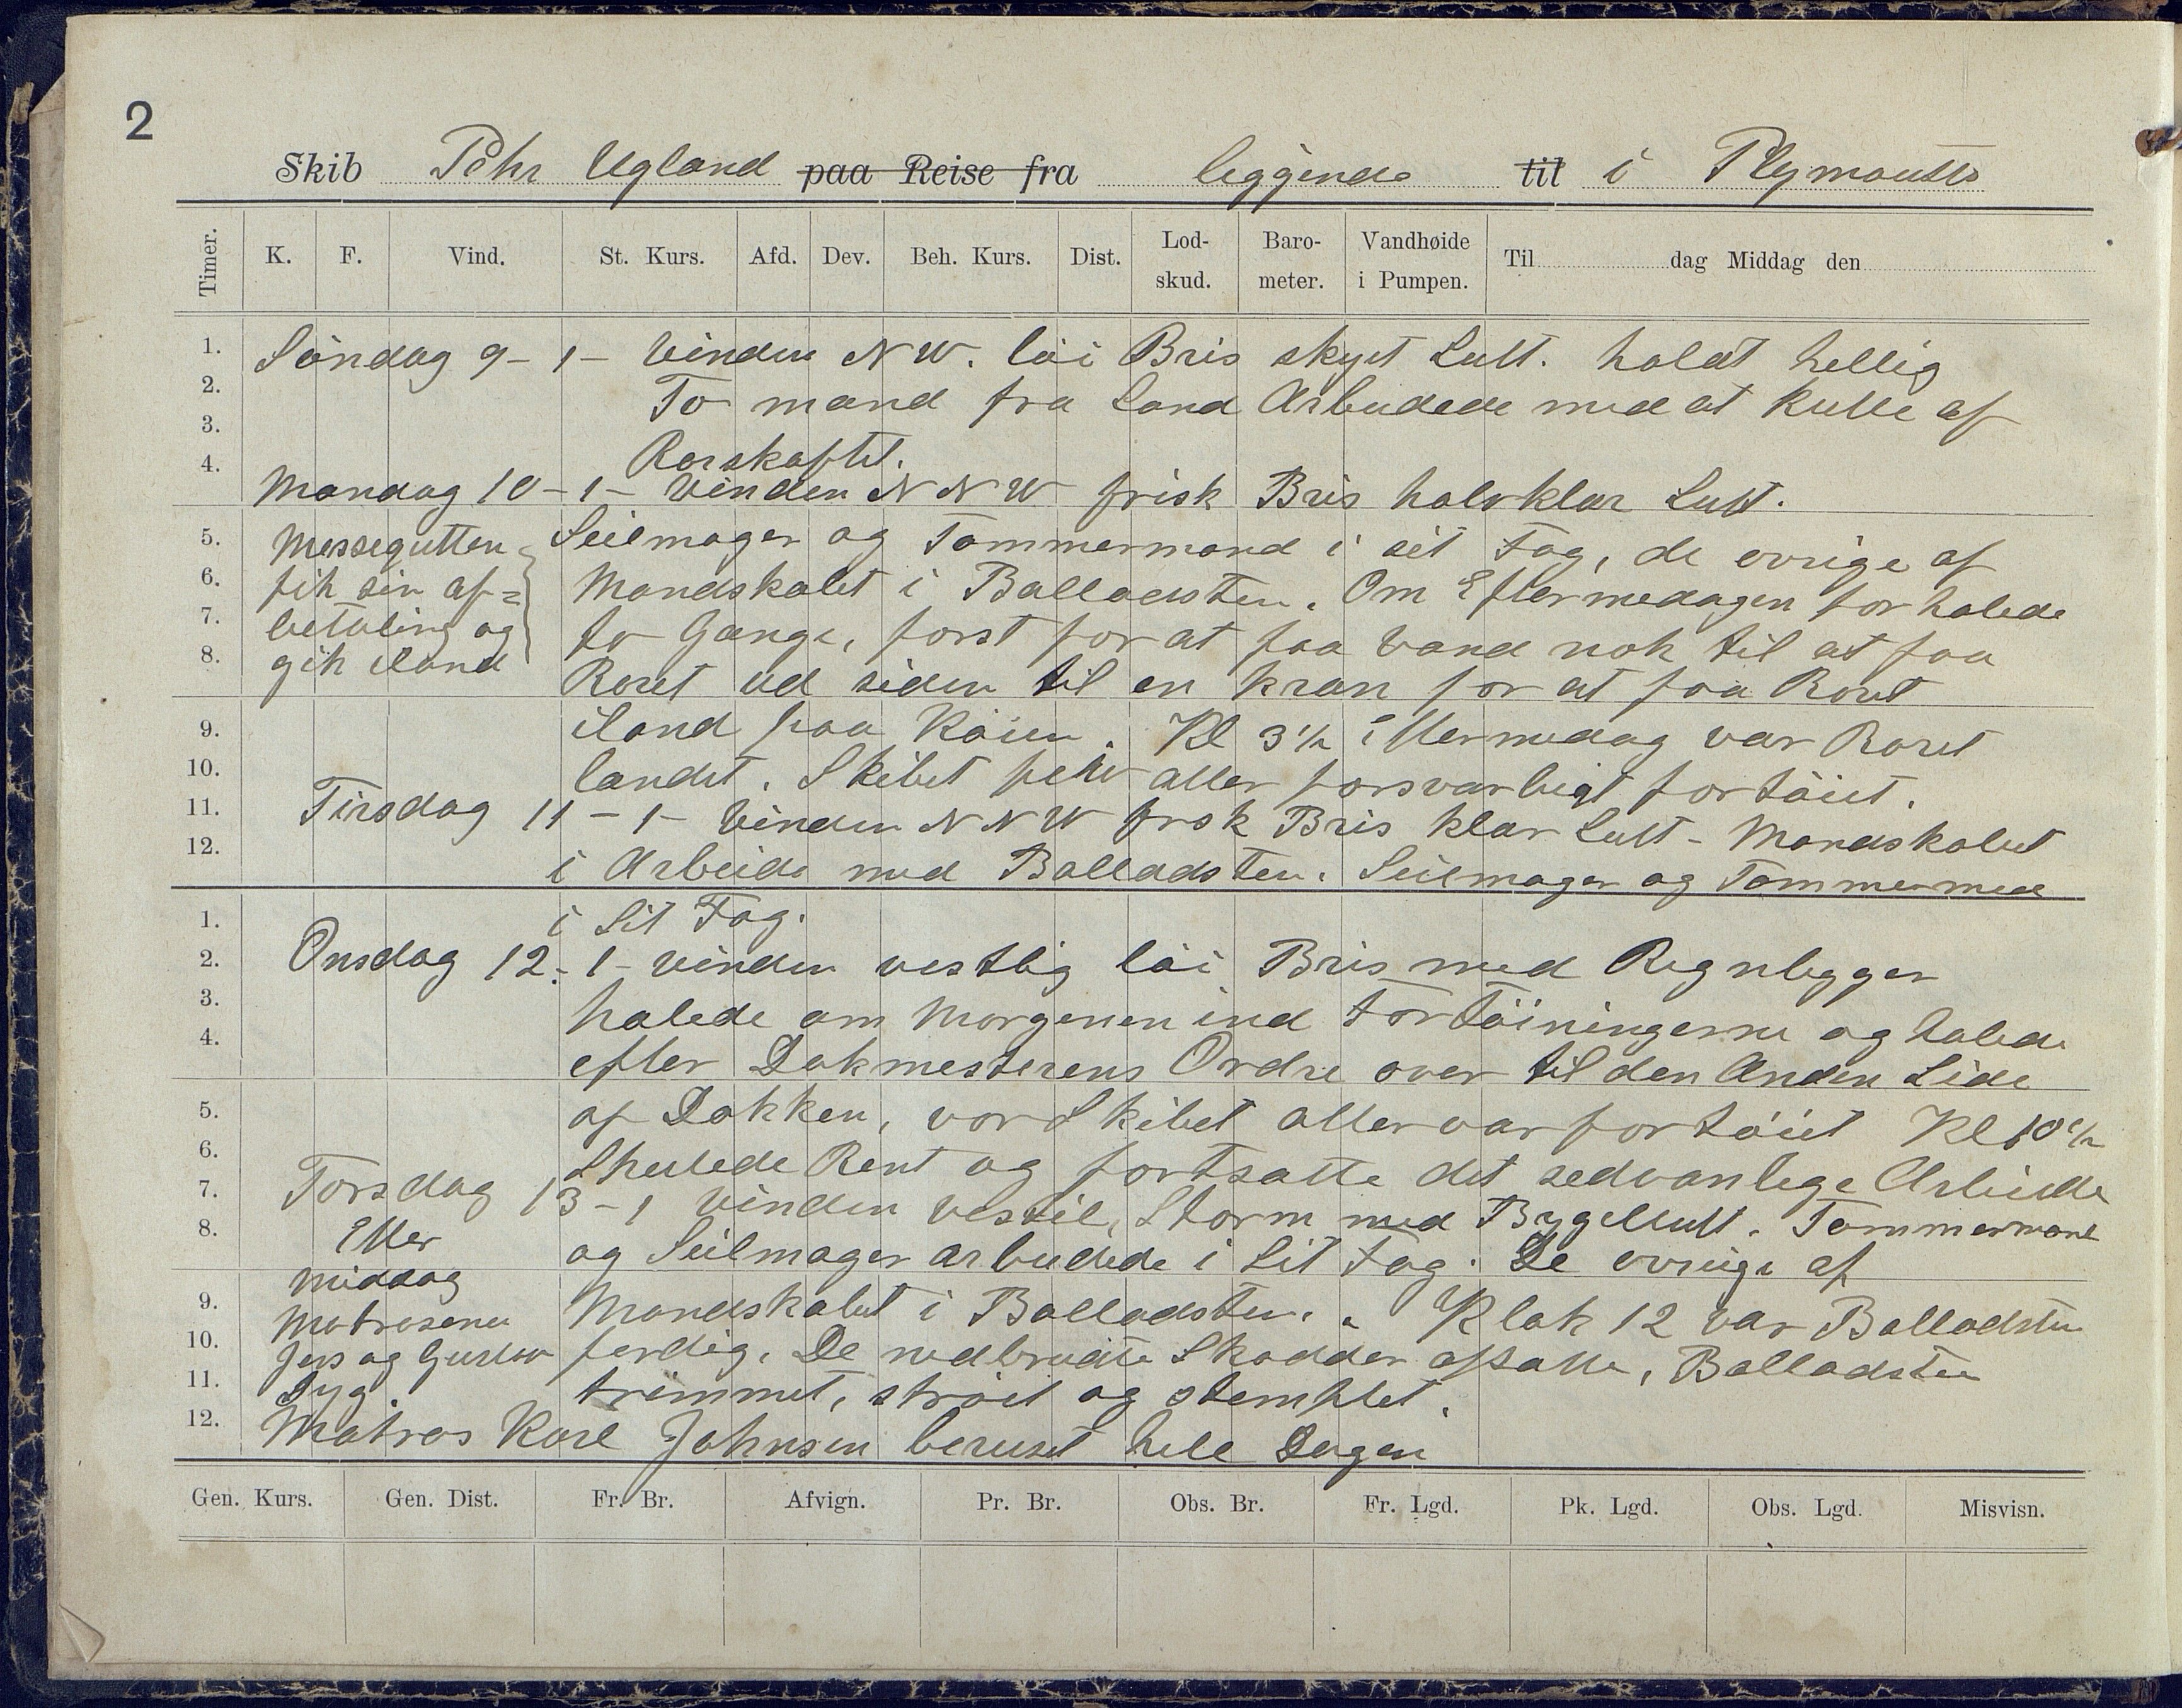 2
Skib Pehr Ugland paa Reise fra liggende til i Plymouth
Timer. K. F. Vind. St. Kurs. Afd. Dev. Beh. Kurs. Dist. Lod-skud. Baro-meter. Vandhøide i Pumpen. Til dag Middag den
1. Söndag 9-1- Vinden NW. löi Bris skyet Luft. holdt hellig
2. To mand fra Land Arbeidede med at kutte af
3. Rorskaftet.
4. Mandag 10-1- Vinden NNW frisk Bris halvklar Luft.
5. Messegutten Seilmager og Tømmermand i sit Fag, de øvrige af
6. fik sin af= Mandskabet i Balladsten. Om Eftermedagen forhalede
7. betaling og to Gange, først for at faa Vand nok til at faa
8. gik iland Roret ud siden til en kran for at faa Roret
9. iland paa Köien. Kl 3½ Eftermedag var Roret
10. landet. Skibet atter forsvarligt fortöiet.
11. Tirsdag 11-1- Vinden NNW frsk Bris klar Luft - Mandskabet
12. i Arbeide med Balladsten. Seilmager og Tømmermed
1. i Sit Fag.
2. Onsdag 12-1- vinden vestlig löi Bris med Regnbygger
3. halede om Morgenen ind Fortöiningerne og halede
4. efter Dokmesterens Ordre over til den Anden Side
5. af Dokken, vor Skibet atter var fortöiet Kl 10½
6. Sheilede Rent og fortsatte det sedvanlige Arbeide
7. Torsdag 13-1 Vinden vestil, Storm med Bygeluft. Tømmermand
8. Efter og Seilmager arbeidede i Sit Fag. De øvrige af
middag
9. Matroserne Mandskabet i Balladsten. Klok 12 var Balladsten
10. Jens og Gustav ferdig. De nedbrudte Skodder opsatte, Balladsten
11. Syg. trimmet, ströet og stemplet.
12. Matros Karl Johnsen beruset hele Dagen
Gen. Kurs. Gen. Dist. Fr. Br. Afvign. Pr. Br. Obs. Br. Fr. Lgd. Pk. Lgd. Obs. Lgd. Misvisn.